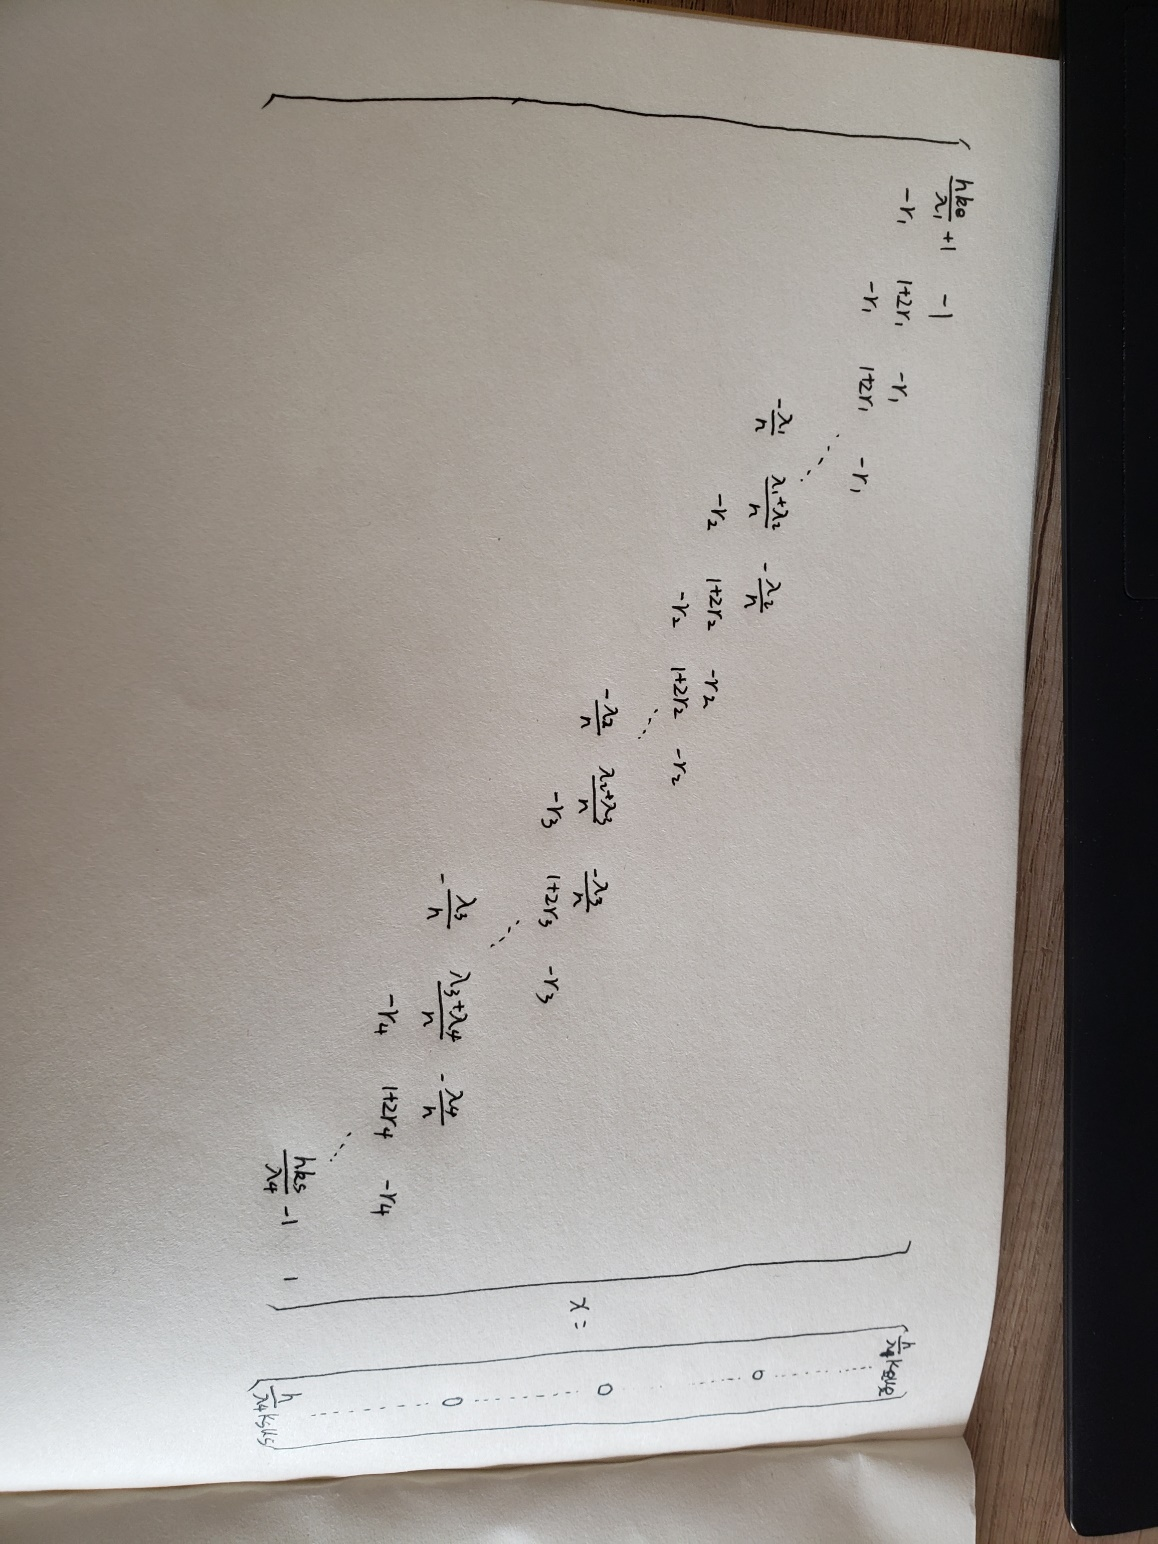 hke/λ1 + 1 -1
-r1 1+2r1 -r1
-r1 1+2r1 -r1
-λ1/h λ1+λ2/h -λ2/h
-r2 1+2r2 -r2
-r2 1+2r2 -r2
-λ2/h λ2+λ3/h -λ3/h
-r3 1+2r3 -r3
-λ3/h λ3+λ4/h -λ4/h
-r4 1+2r4 -r4
hks/λ4 -1 1
x =
0
0
0
h/λ4 ksus